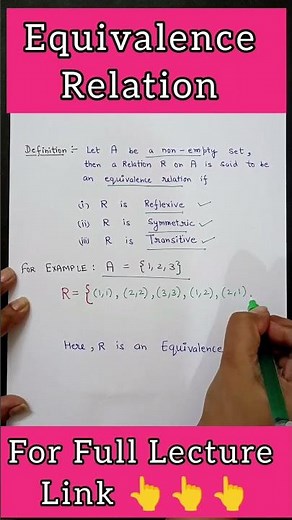 Equivalence
Relation
Definition :- Let A be a non-empty set,
then a Relation R on A is said to be
an equivalence relation if
(i) R is Reflexive ✓
(ii) R is Symmetric ✓
(iii) R is Transitive ✓
FOR EXAMPLE : A = {1,2,3}
R = {(1,1), (2,2), (3,3), (1,2), (2,1)
Here, R is an Equivalence
For Full Lecture
Link 👆👆👆